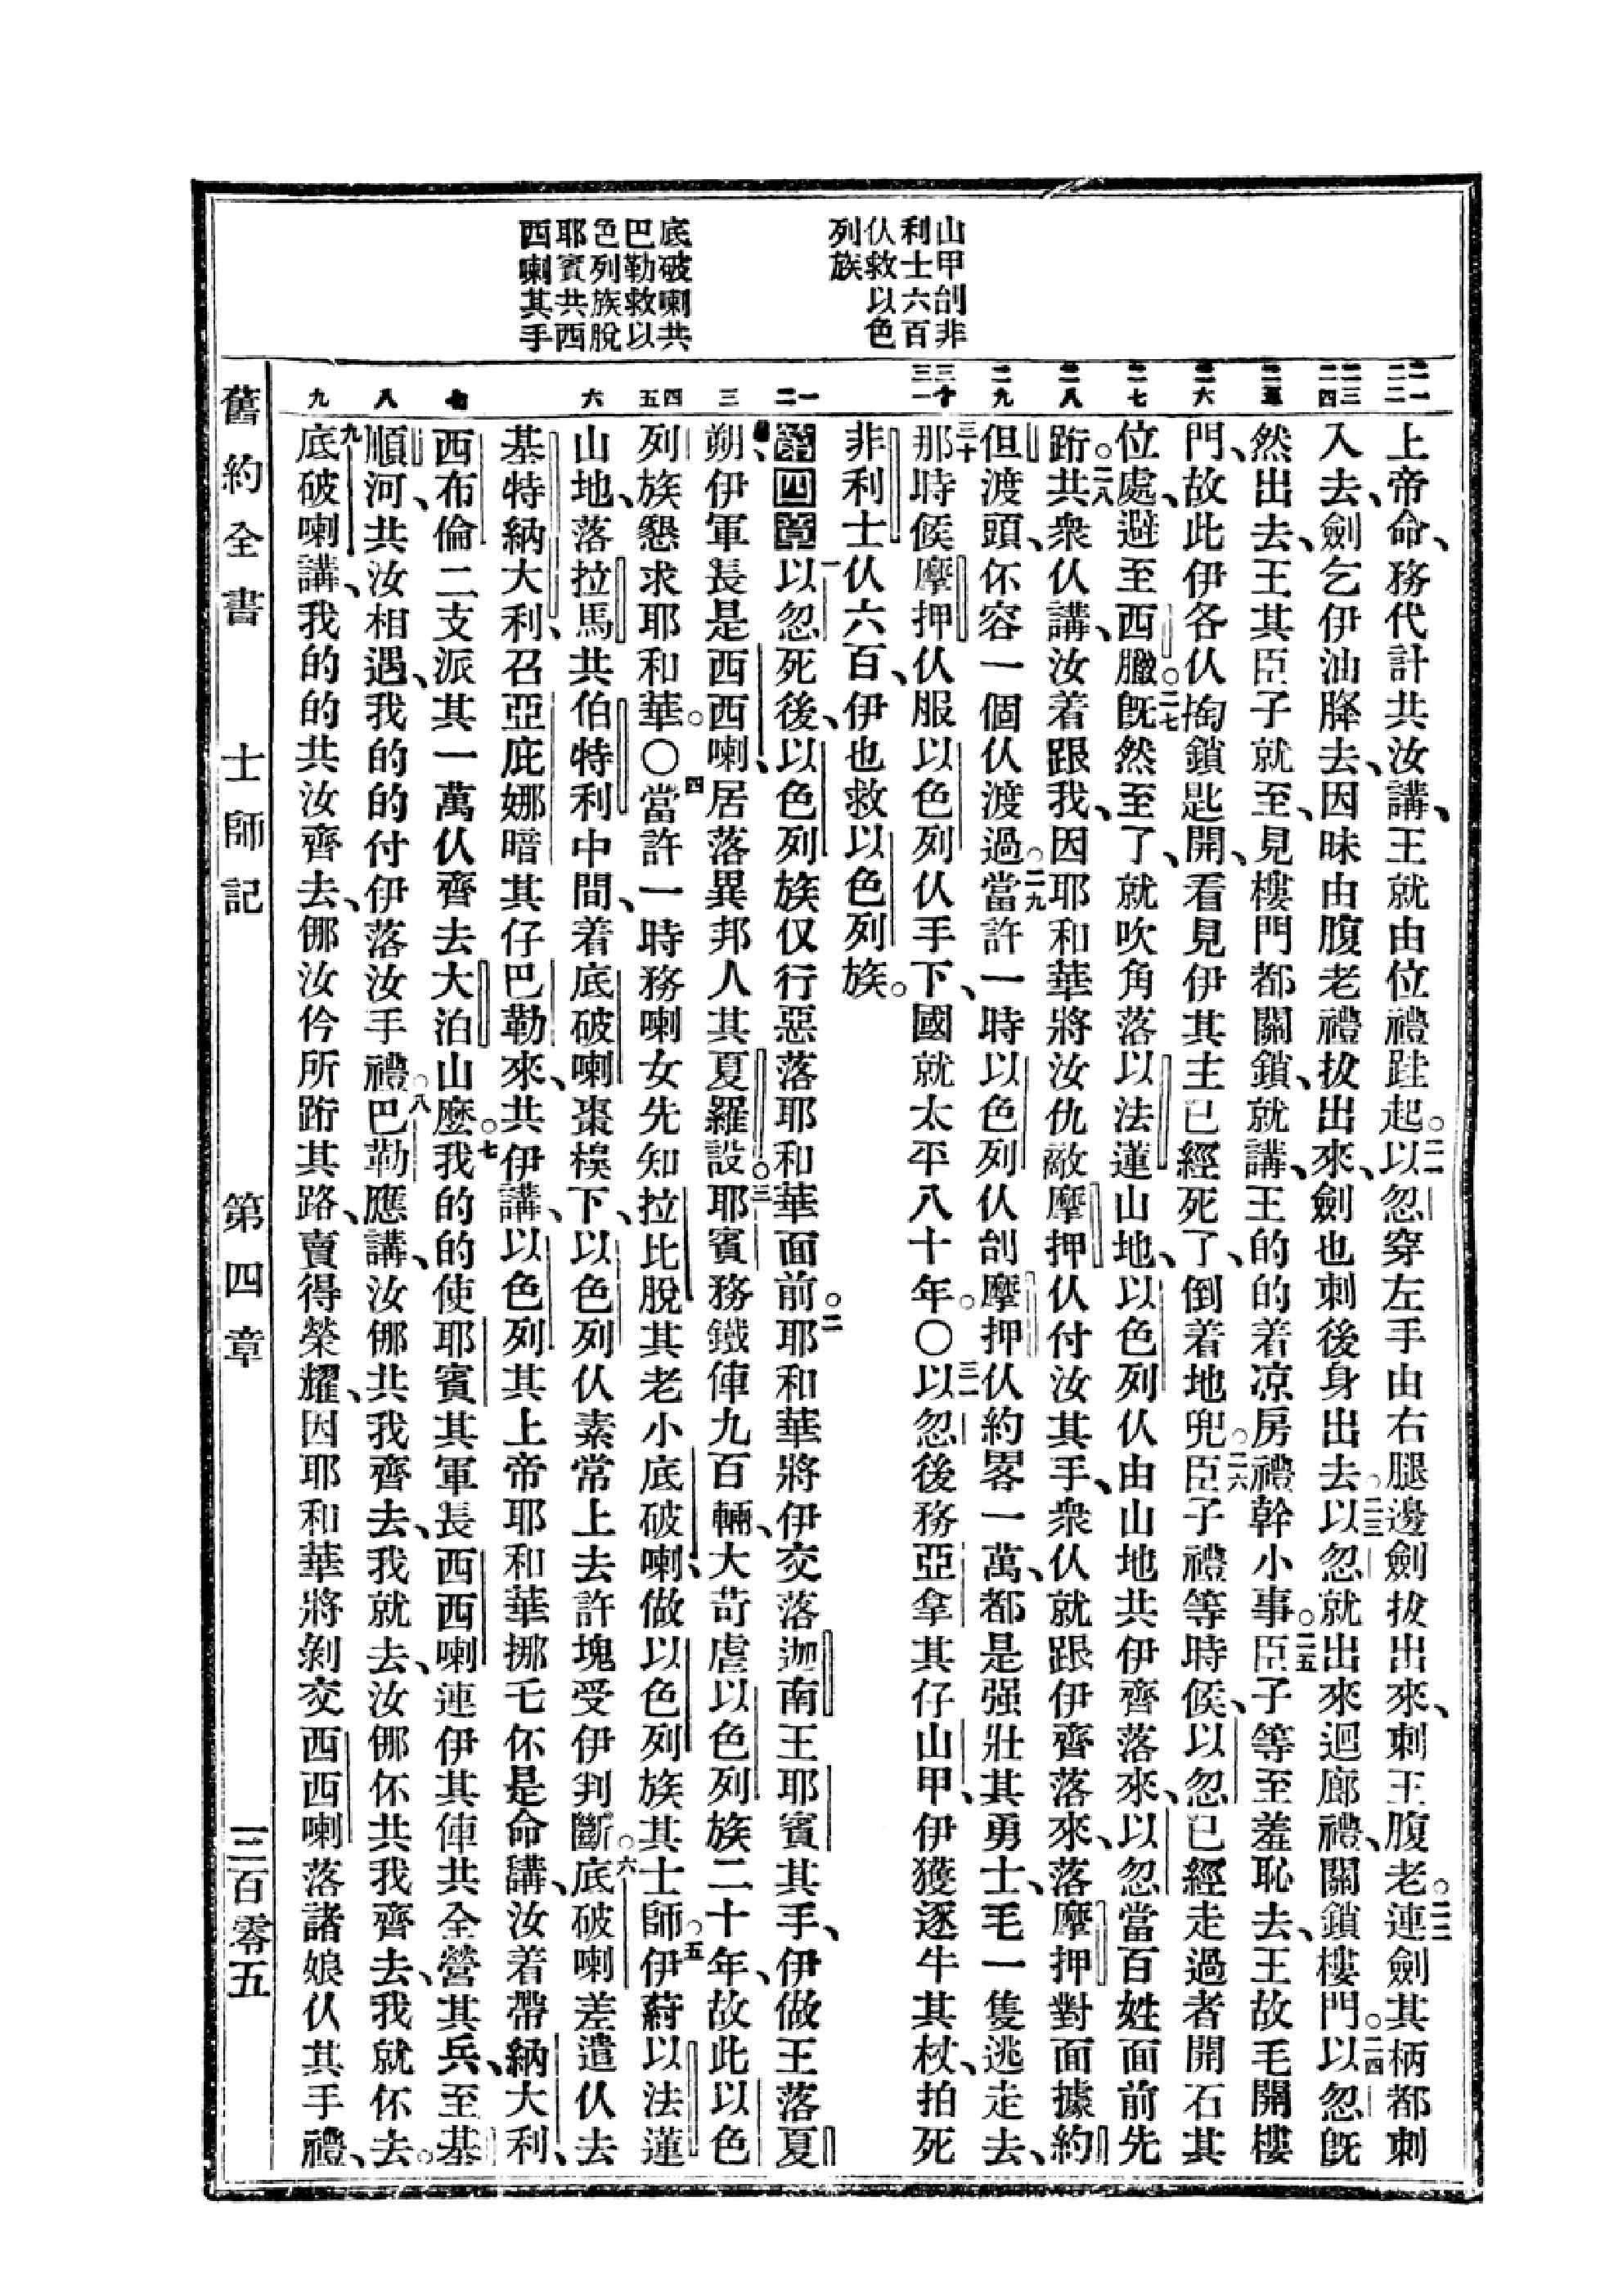 山甲刣非
利士六百
仈救以色
列族
底破喇共
巴勒救以
色列族脫
耶賓共西
西喇其手
二一
二二
二三
二四
二五
二六
二七
二八
二九
三十
三一
一
二
三
四
五
六
七
八
九
上帝命、務代計共汝講、王就由位禮跬起。二一以忽穿左手由右腿邊劍拔出來、刺王腹老。二二連劍其柄都刺
入去、劍乞伊油䏺去、因昧由腹老禮拔出來、劍也刺後身出去。二三以忽就出來迴廊禮、關鎖樓門。二四以忽旣
然出去、王其臣子就至、見樓門都關鎖、就講、王的的着凉房禮幹小事。二五臣子等至羞恥去、王故毛開樓
門、故此伊各仈掏鎖匙開、看見伊其主已經死了、倒着地兜。二六臣子禮等時候、以忽已經走過者開石其
位處、避至西臘。二七旣然至了、就吹角落以法蓮山地、以色列仈由山地共伊齊落來、以忽當百姓面前先
跲。二八共衆仈講、汝着跟我、因耶和華將汝仇敵摩押仈付汝其手、衆仈就跟伊齊落來、落摩押對面據約
但渡頭、伓容一個仈渡過。二九當許一時、以色列仈刣摩押仈約畧一萬、都是强壯其勇士、毛一隻逃走去、
三十那時候摩押仈服以色列仈手下、國就太平八十年。〇三一以忽後務亞拿其仔山甲、伊獲逐牛其杖、拍死
非利士仈六百、伊也救以色列族。
第四章一以忽死後、以色列族仅行惡落耶和華面前。二耶和華將伊交落迦南王耶賓其手、伊做王落夏
朔、伊軍長是西西喇、居落異邦人其夏羅設。三耶賓務鐵俥九百輛、大苛虐以色列族二十年、故此以色
列族懇求耶和華。〇四當許一時務喇女先知拉比脫其老小底破喇、做以色列族其士師。五伊蒞以法蓮
山地、落拉馬共伯特利中間、着底破喇棗模下、以色列仈素常上去許塊受伊判斷。六底破喇差遣仈去
基特納大利、召亞庇娜暗其仔巴勒來、共伊講、以色列其上帝耶和華挪乇伓是命講、汝着帶納大利、
西布倫二支派其一萬仈齊去大泊山麽。七我的的使耶賓其軍長西西喇連伊其俥共全營其兵、至基
順河、共汝相遇、我的的付伊落汝手禮。八巴勒應講、汝㑚共我齊去、我就去、汝㑚伓共我齊去、我就伓去。
九底破喇講、我的的共汝齊去、㑚汝仱所跲其路、賣得榮耀、因耶和華將剝交西西喇落諸娘仈其手禮、
舊約全書　士師記　第四章　三百零五